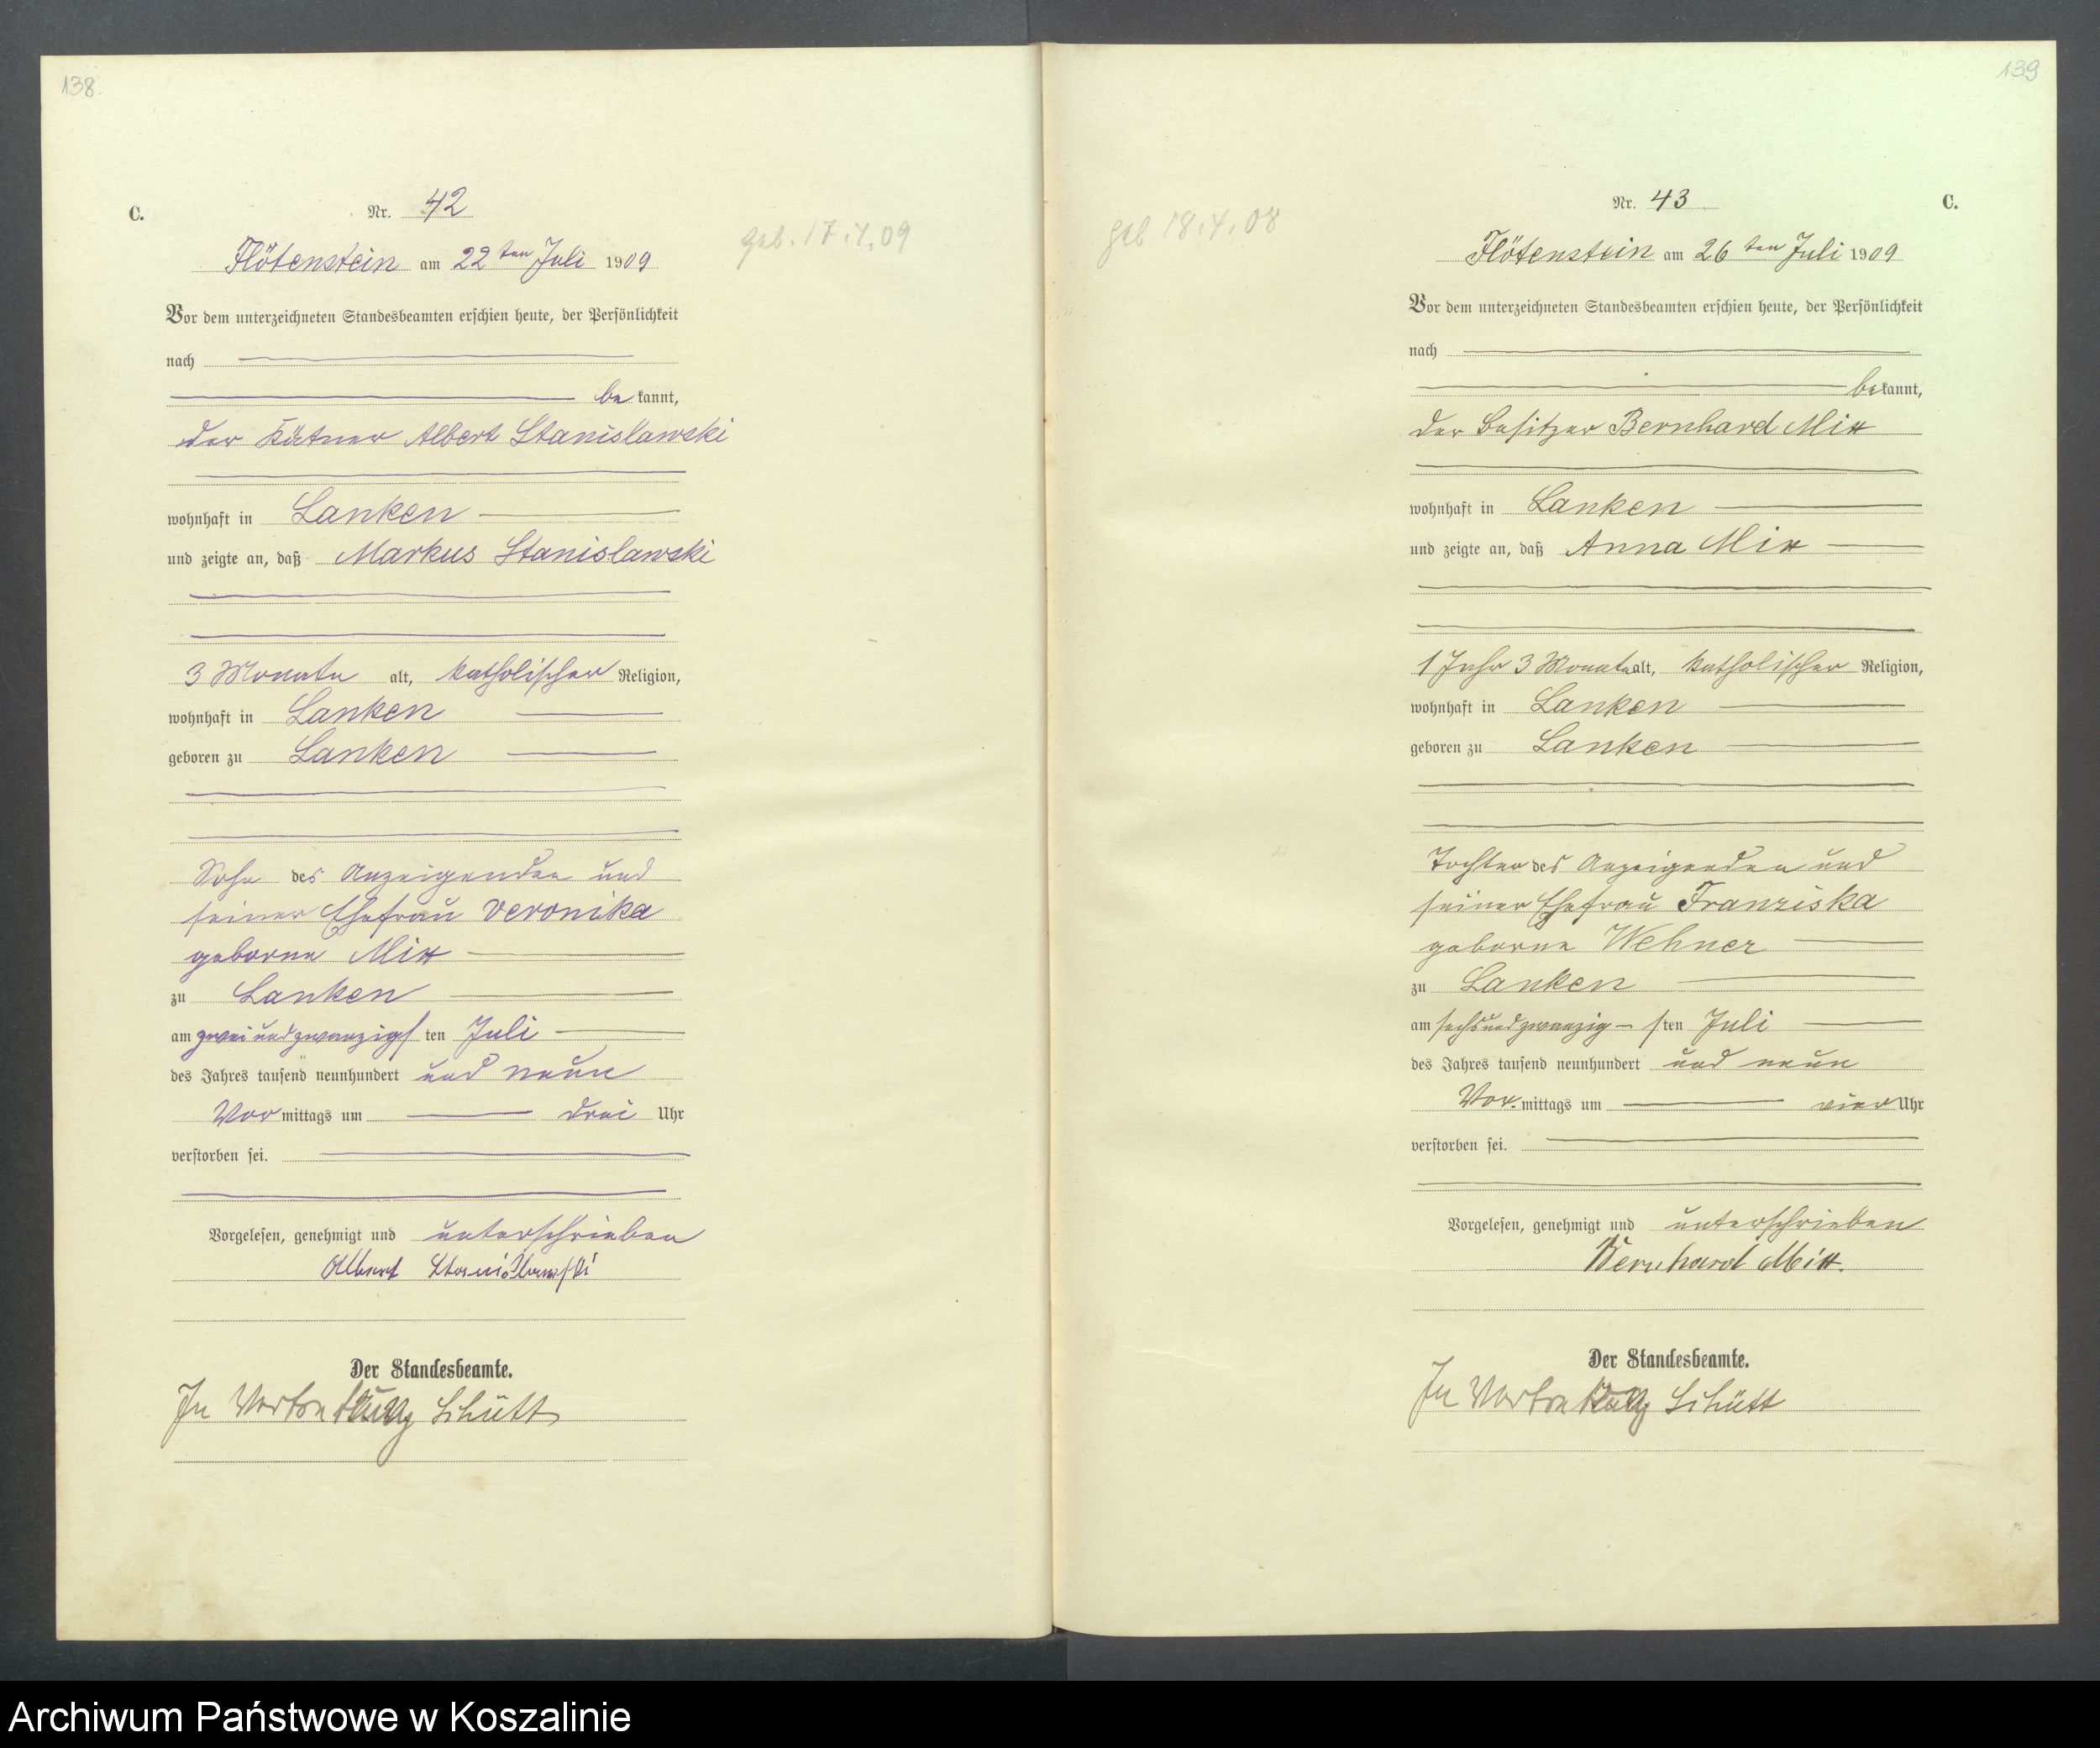 138.
C.
Nr. 42
geb. 17.4.09
Flötenstein am 22ten Juli 1909
Vor dem unterzeichneten Standesbeamten erschien heute, der Persönlichkeit
nach
be kannt,
der Kätner Albert Stanislawski
wohnhaft in Lanken
und zeigte an, daß Markus Stanislawski
3 Monate alt, katholischer Religion,
wohnhaft in Lanken
geboren zu Lanken
Sohn des Anzeigenden und
seiner Ehefrau Veronika
geborne Mix
zu Lanken
am zweiundzwanzigs ten Juli
des Jahres tausend neunhundert und neun
Vor mittags um drei Uhr
verstorben sei.
Vorgelesen, genehmigt und unterschrieben
Albert Stanislawski
Der Standesbeamte.
In Vertretung Schütt
139
Nr. 43
C.
geb 18.4.08
Flötenstein am 26ten Juli 1909
Vor dem unterzeichneten Standesbeamten erschien heute, der Persönlichkeit
nach
bekannt,
der Besitzer Bernhard Mix
wohnhaft in Lanken
und zeigte an, daß Anna Mix
1 Jahr 3 Monate alt, katholischer Religion,
wohnhaft in Lanken
geboren zu Lanken
Tochter des Anzeigenden und
seiner Ehefrau Franziska
geborne Wehner
zu Lanken
am sechsundzwanzig-s ten Juli
des Jahres tausend neunhundert und neun
Vor. mittags um vier Uhr
verstorben sei.
Vorgelesen, genehmigt und unterschrieben
Bernhard Mix.
Der Standesbeamte.
In Vertretung Schütt
Archiwum Państwowe w Koszalinie